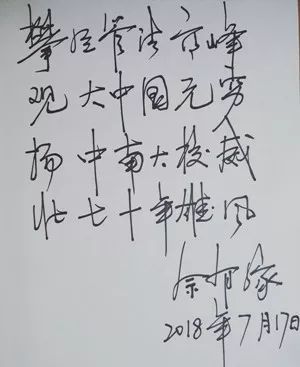 攀经管法高峰
观大中国无穷
扬中南大校威
壮七十年雄风
2018年7月17日